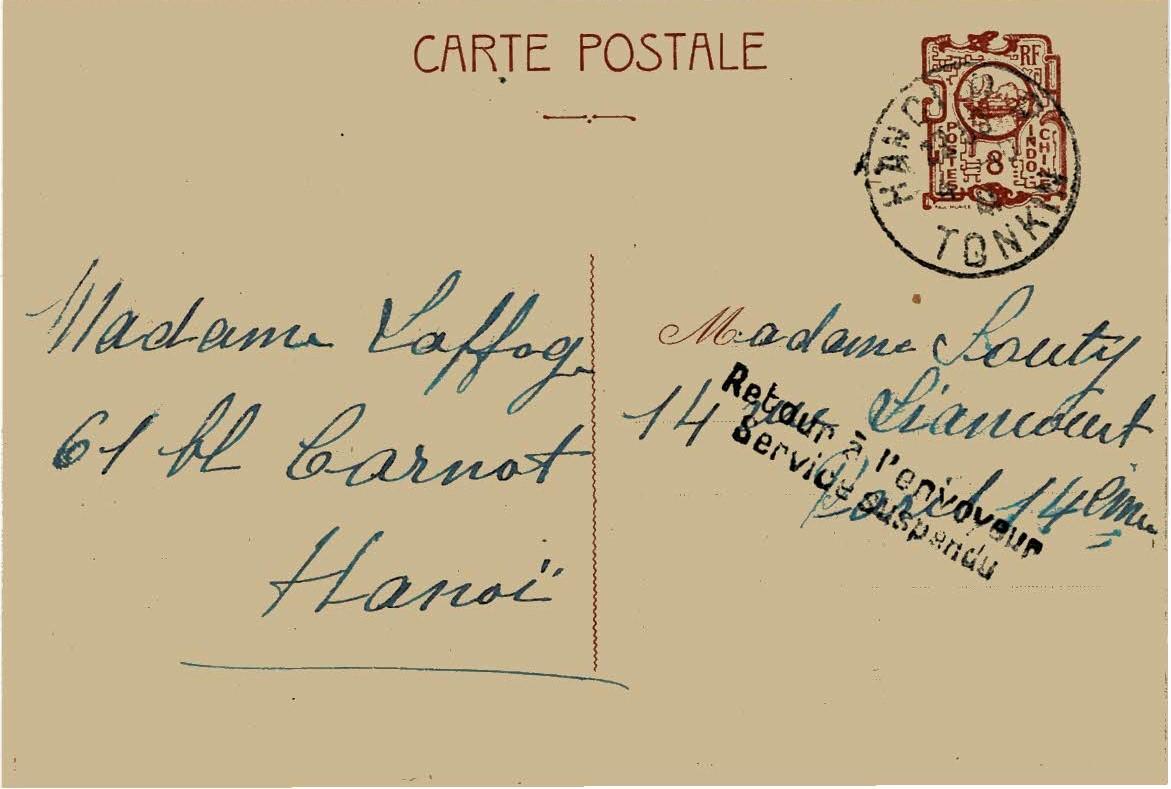 CARTE POSTALE
RF
POSTES
INDO
CHINE
8
HANOI
TONKIN
Madame
61 bd Carnot
Hanoï
Madame Souty
14 rue Liancourt
Paris 14ème
Retour à l'envoyeur
Service suspendu